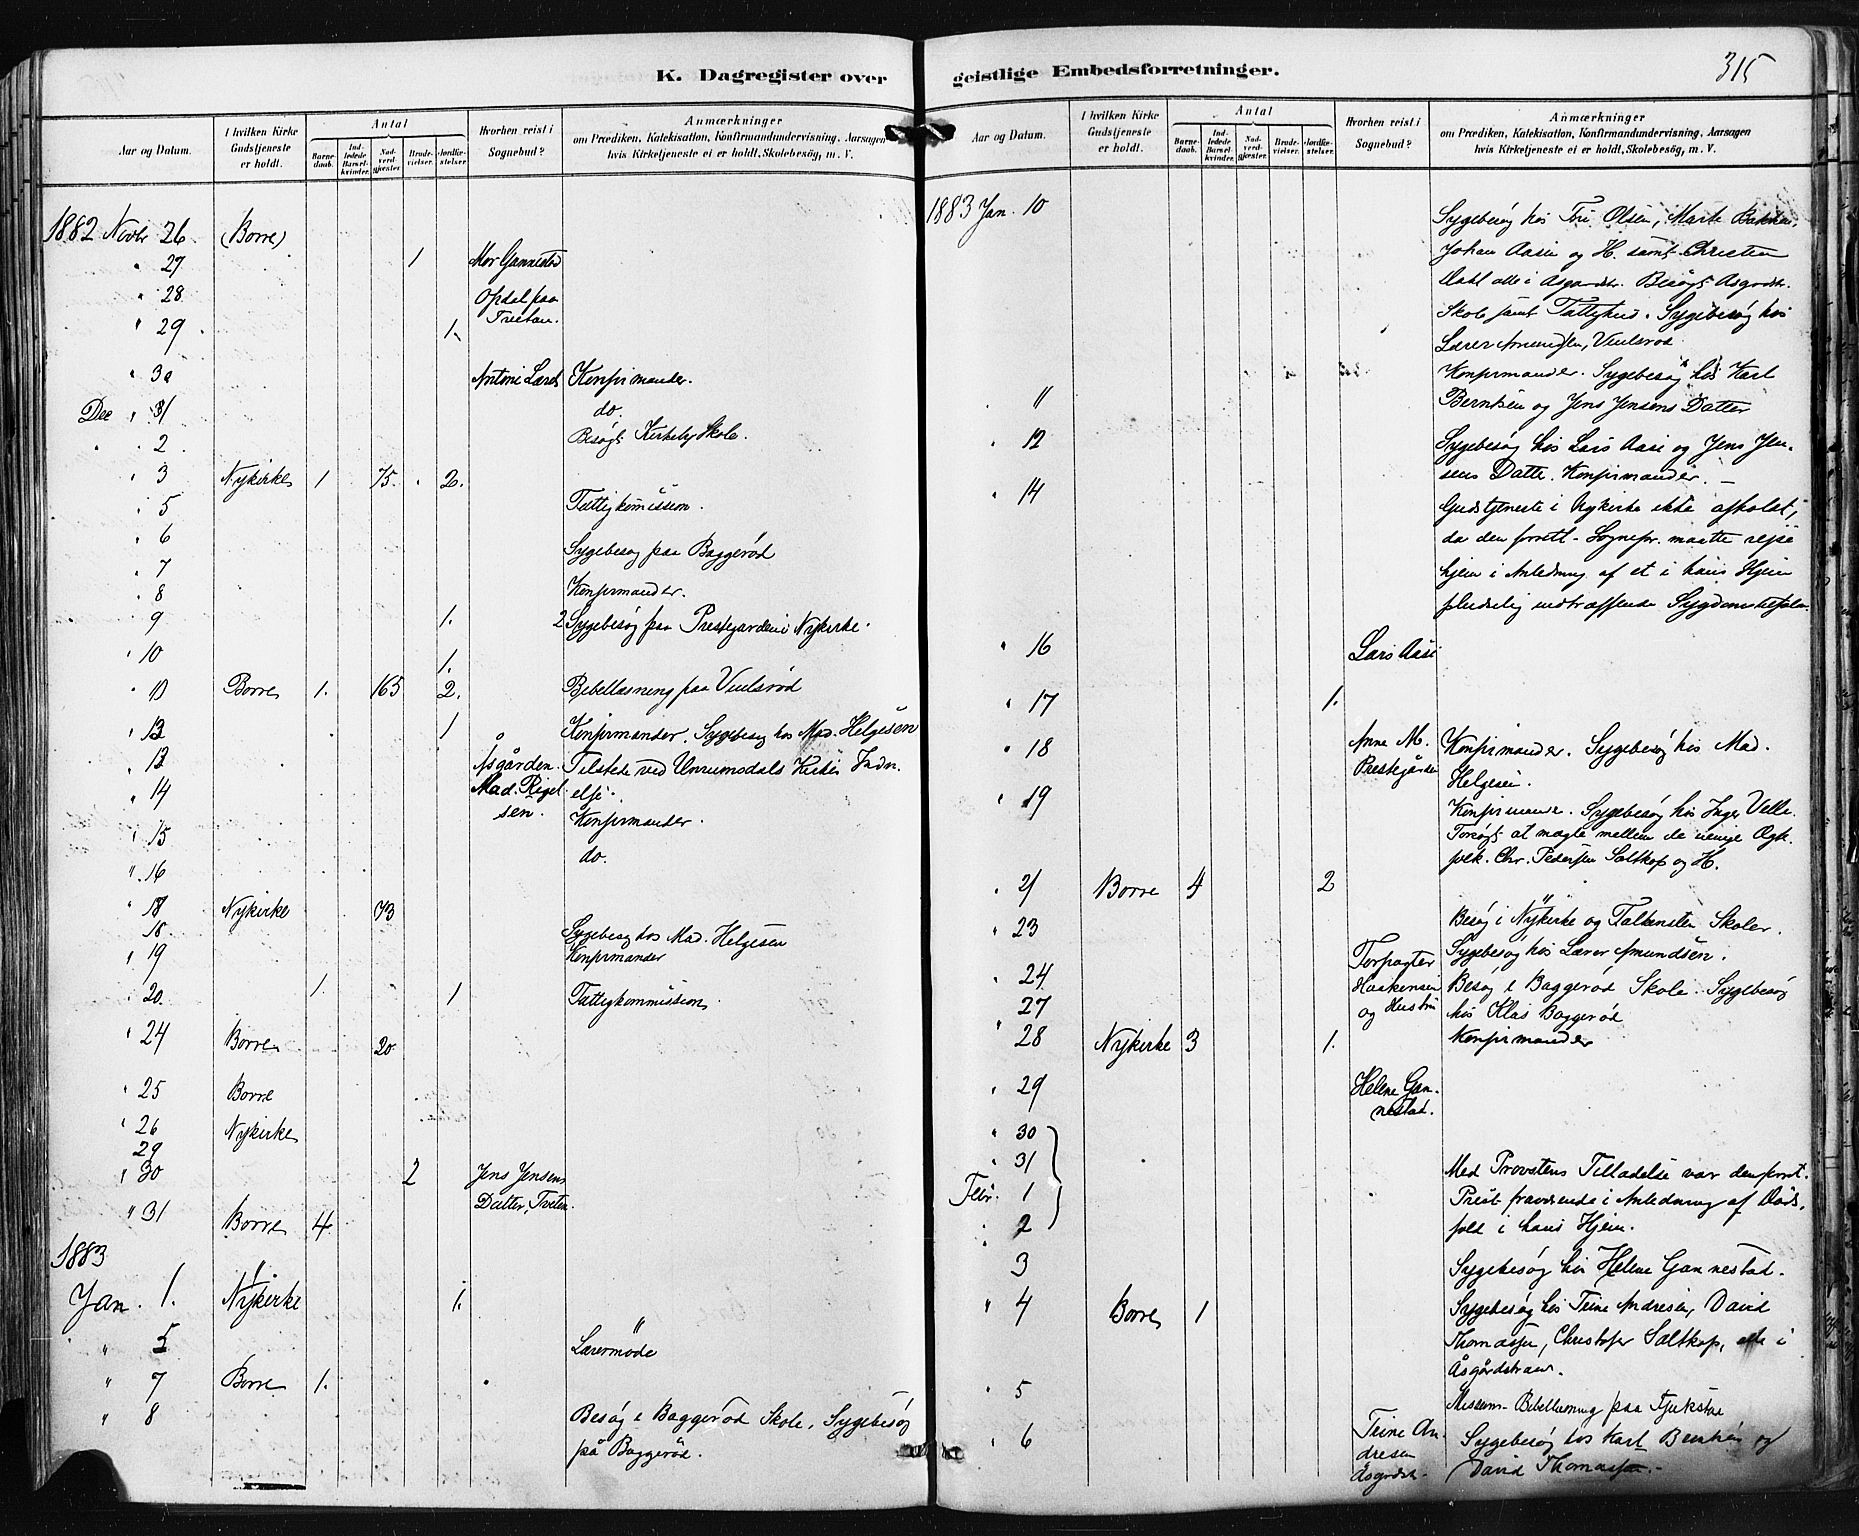 315
K. Dagregister over geistlige Embedsforretninger.
Aar og Datum.
I hvilken Kirke Gudstjeneste er holdt.
Antal
Barnedaab.
Indledede Barselkvinder.
Nadverdgjæster.
Brudevielser.
Jordfæstelser.
Hvorhen reist i Sognebud?
Anmærkninger
om Prædiken, Katekisation, Konfirmandundervisning, Aarsagen
hvis Kirketjeneste ei er holdt, Skolebesög, m. V.
1882 Novbr 26. (Borre)
" 27 1 Mor Gannestad
" 28 Opdal paa
" 29 1. Tveitan.
" 30 Antoni Konfirmander.
Dec " 31 do.
" 2 Besögt Kirkeby Skole.
" 3 Nykirke 1 75. 2.
" 5 Fattigkomission.
" 6 Sygebesög paa Baggeröd
" 7
" 8 Konfirmander.
" 9 1. 2 Sygebesög paa Prestegarden i Nykirke.
" 10 1.
" 10 Borre 1. 165 2. Bibellæsning paa
" 12 1 Konfirmander. Sygebesög hos Mad. Helgesen
" 13 Åsgården. Tilstede ved Kirkes Indvi
" 14 Mad. Rigel- else.
" 15 sen. Konfirmander.
" 16 do.
" 18 Nykirke 73
18 Sygebesög hos Mad. Helgesen
" 19 Konfirmander
" 20 1 1 Fattigkommission
" 24 Borre 20
" 25 Borre
" 26 Nykirke
29
" 30 2 Jens Jensens
" 31 Borre 4 Datter, Tveten.
1883
Jan. 1. Nykirke 1.
" 5 Lærermöde
" 7 Borre 1.
" 8 Besög i Baggeröd Skole, Sygebesög
på Baggeröd.
Aar og Datum.
I hvilken Kirke Gudstjeneste er holdt.
Antal
Barnedaab.
Indledede Barselkvinder.
Nadverdgjæster.
Brudevielser.
Jordfæstelser.
Hvorhen reist i Sognebud?
Anmærkninger
om Prædiken, Katekisation, Konfirmandundervisning, Aarsagen
hvis Kirketjeneste ei er holdt, Skolebesög, m. V.
1883 Jan. 10 Sygebesög hos Olsen, Bakken,
Johan Aasi og H. samt Christen
Dahl alle i Åsgårdstr. Besögt Åsgårdstr.
Skole samt Fattighus. Sygebesög hos
Lærer Amundsen,
Konfirmander. Sygebesög hos Karl
" 11 Berntsen og Jens Jensens Datter
" 12 Sygebesög hos Lars Aasi og Jens Jen-
sens Datte. Konfirmander. -
" 14 Gudstjeneste i Nykirke ikke afholdt,
da den forrett- Sognepr. maatte rejse
hjem i Anledning af et i hans Hjem
pludselig indtræffende Sygdomstilfælde.
" 16 Lars Aasi
" 17 1.
" 18 Anne M. Konfirmander. Sygebesög hos Mad.
Prestegården Helgesen.
" 19 Konfirmander. Sygebesög hos Inger Velle.
Forsögt at mægle mellem de uenige Ægte-
folk. Chr. Pedersen Saltkop og H.
" 21 Borre 4 2
" 23 Besög i Nykirke og Falkensten Skoler.
Forpagter Sygebesög hos Lærer Amundsen.
" 24 Haakensen Besög i Baggeröd Skole. Sygebesög
27 og Hustru hos Klas Baggeröd
" 28 Nykirke 3 1. Konfirmander
" 29 Helene Gan-
nestad.
" 30
" 31 Med Provstens Tilladelse var den forrt.
Febr. 1 Prest fraværende i Anledning af Döds-
" 2 fald i hans Hjem.
3 Sygebesög hos Helene Gannestad.
" 4 Borre 1 Sygebesög hos Trine Andresen, David
Thomassen, Christofer Saltkop, alle i
Åsgårdstrand.
" 5 Missions- Bibellæsning paa
" 6 Trine An- Sygebesög hos Karl Berntsen og
dresen David Thomassen.
Åsgårdstr.